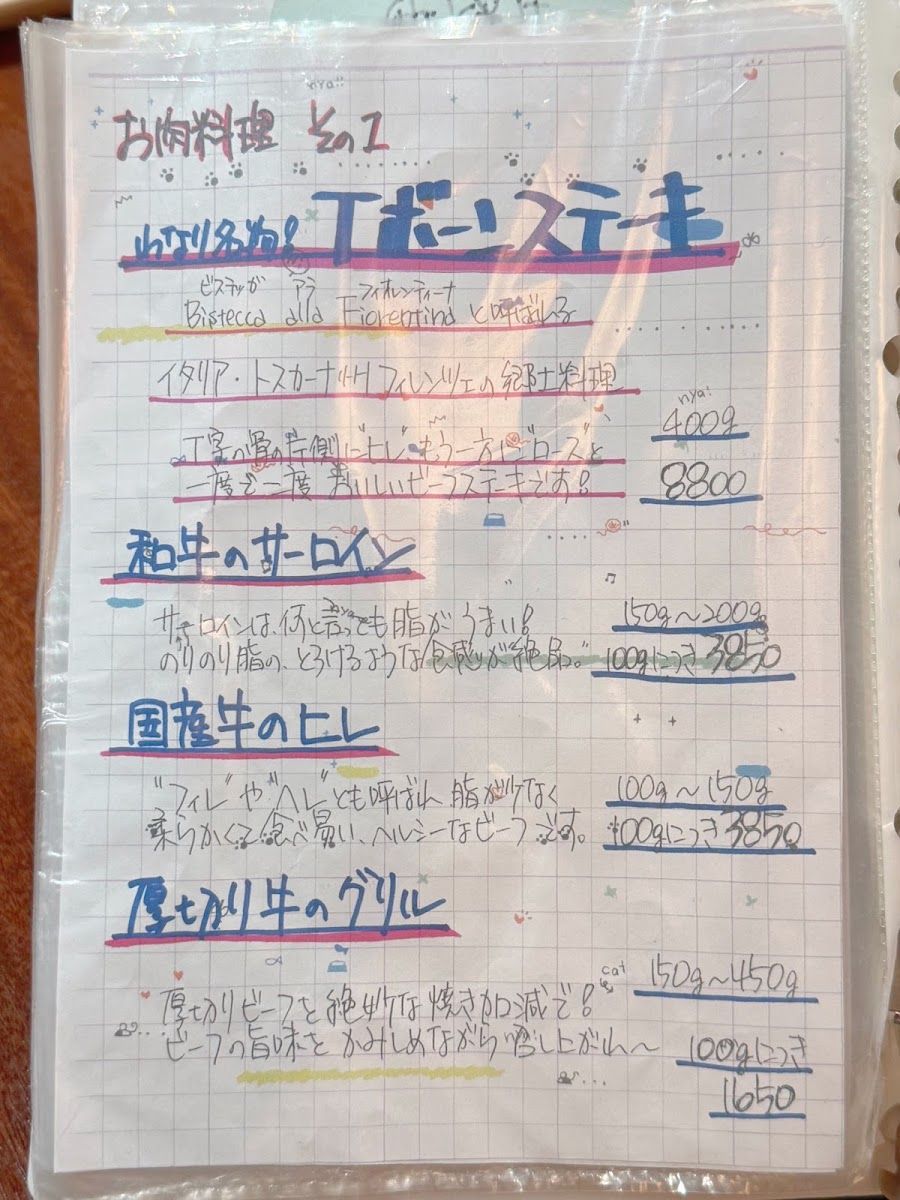 nya!!
お肉料理 その1
かなり名物! Tボーンステーキ
ビステッカ アラ フィオレンティーナ
Bistecca alla Fiorentina と呼ばれる
イタリア・トスカーナ州フィレンツェの郷土料理
nya!
400g
T字の骨の片側に"ヒレ"、もう一方に"ロース"と
一度で二度 おいしいビーフステーキです!
8800
和牛のサーロイン
nya
サーロインは、何と言っても脂がうまい!
150g〜200g
のりのり脂の、とろけるような食感が絶品。
100gにつき 3850
国産牛のヒレ
"フィレ"や"ヘレ"とも呼ばれ 脂が少なく
100g〜150g
柔らかくて食べ易い、ヘルシーなビーフです。
100gにつき 3850
厚切り牛のグリル
cat
150g〜450g
厚切りビーフを絶妙な焼き加減で!
ビーフの旨味を かみしめながら 召し上がれ〜
100gにつき
1650